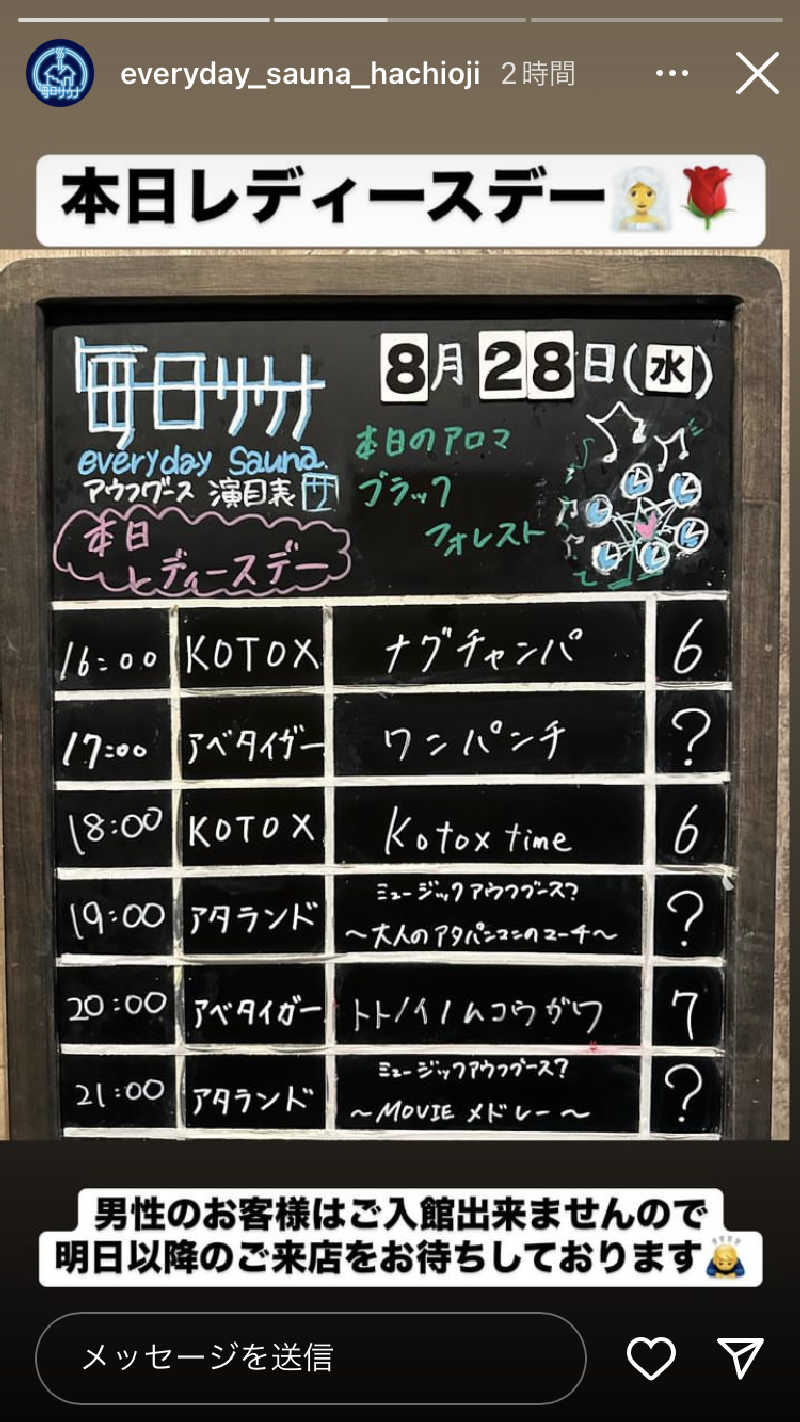 everyday_sauna_hachioji 2時間
本日レディースデー👰🌹
毎日サウナ
8月28日(水)
everyday Sauna.
アウフグース 演目表 サ
本日のアロマ
ブラック
フォレスト
本日
レディースデー
16:00 KOTOX ナグチャンパ 6
17:00 アベタイガー ワンパンチ ?
18:00 KOTOX Kotox time 6
19:00 アタランド ミュージックアウフグース?
～大人のアタパンマンのマーチ～ ?
20:00 アベタイガー トトノイノムコウガワ 7
21:00 アタランド ミュージックアウフグース?
～MOVIEメドレー～ ?
男性のお客様はご入館出来ませんので
明日以降のご来店をお待ちしております🙇
メッセージを送信